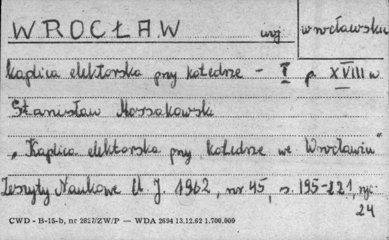 WROCŁAW woj wrocławskie
Kaplica elektorska przy katedrze - I p. XVIII w
Stanisław Mossakowski
„Kaplica elektorska przy katedrze we Wrocławiu"
Zeszyty Naukowe U. J. 1962, nr. 45, s. 195-221, ryc.
24
CWD - B-15-b, nr 2827/ZW/P — WDA 2694 13.12.62 1.700.000